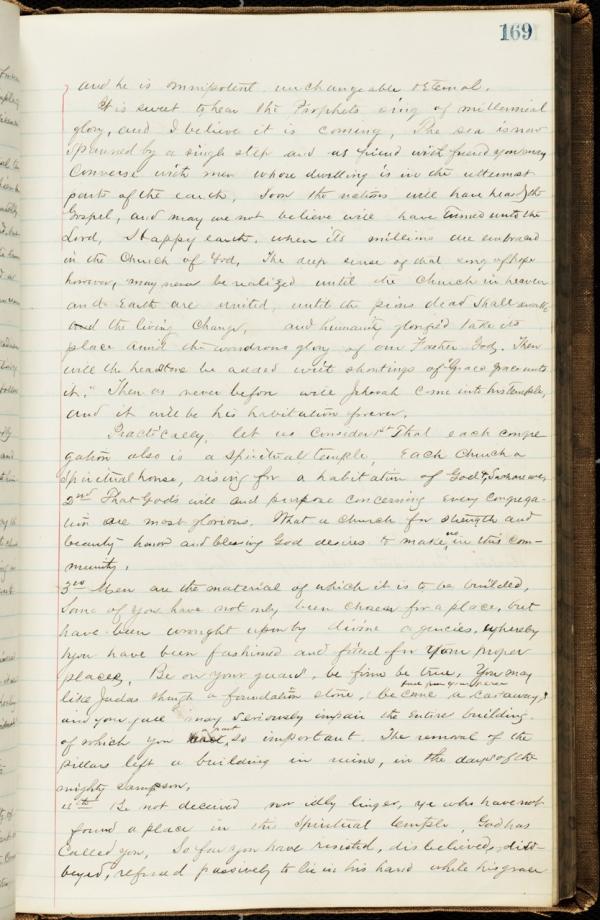 169
and he is omnipotent, unchangeable & Eternal.
It is sweet to hear the Prophets sing of millennial
glory, and I believe it is coming, The sea is now
spanned by a single step and as friend with friend you may
Converse with men whose dwelling is in the uttermost
parts of the earth, Soon the nations will have heard the
Gospel, and may we not believe will have turned unto the
Lord, Happy earth, when its millions are embraced
in the Church of God, The deep sense of that song of hope
however, may never be realized until the Church in heaven
and Earth are united, until the pious dead shall awake
the living Change, and humanity glorified take its
place amid the wondrous glory of our Father God, Then
will the headstone be added with shoutings of "Grace grace unto
it." Then as never before will Jehovah come into his temple,
and it will be his habitation forever.
Practically, let us consider 1st That each congre
gation also is a Spiritual temple, Each Church a
Spiritual house, rising for a habitation of God, Such are we,
2nd That God's will and purpose concerning every Congrega-
tion are most glorious. What a church for strength and
beauty honor and blessing God desires to make us in this com-
munity.
3rd Men are the material of which it is to be builded,
Some of you have not only been chosen for a place, but
have been wrought upon by divine agencies, whereby
you have been fashioned and fitted for your proper
places, Be on your guard, be firm be true, You may
like Judas though a foundation stone, become a castaway,
and your fall may seriously impair the entire building
of which you are part so important. The removal of the
pillars left a building in ruins, in the days of the
mighty Sampson,
4th Be not deceived nor idly linger, ye who have not
found a place in the Spiritual temple, God has
Called you, So far you have resisted, disbelieved, diso-
beyed, refused passively to lie in his hand while his grace